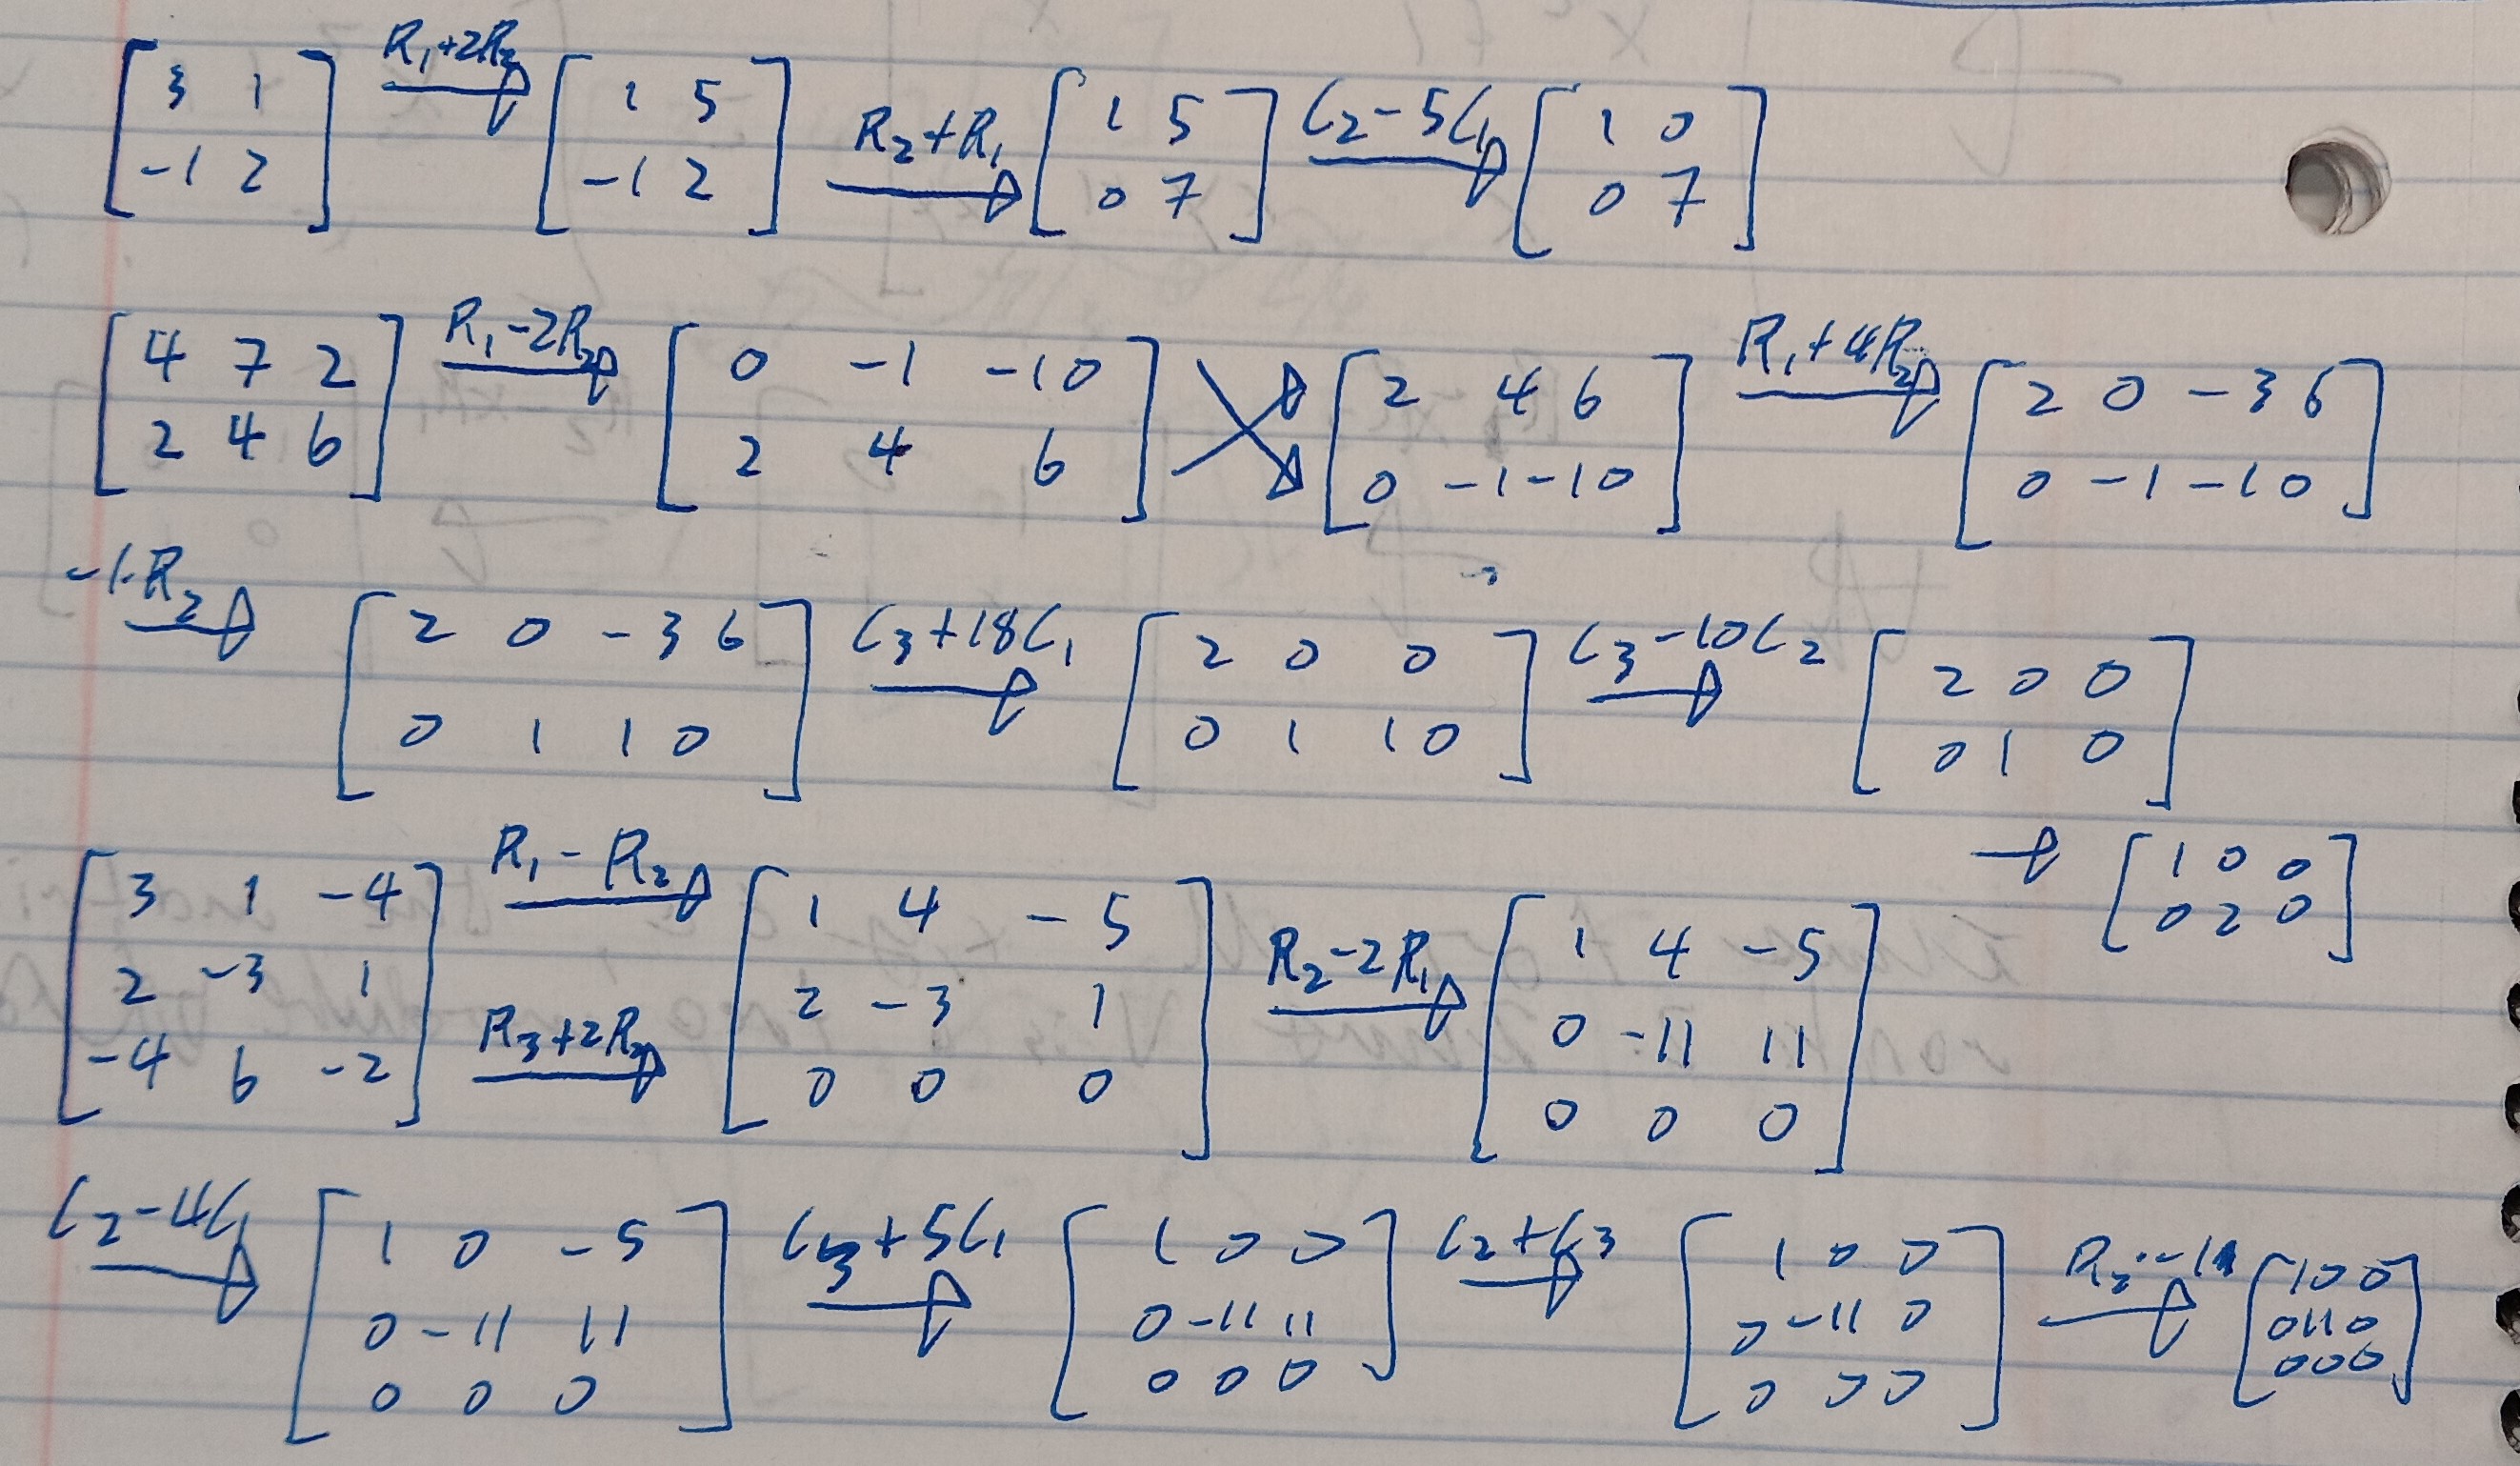 [3 1; -1 2] R₁+2R₂ → [1 5; -1 2] R₂+R₁ → [1 5; 0 7] C₂-5C₁ → [1 0; 0 7]
[4 7 2; 2 4 6] R₁-2R₂ → [0 -1 -10; 2 4 6] ⤨ [2 4 6; 0 -1 -10] R₁+4R₂ → [2 0 -36; 0 -1 -10]
-1·R₂ → [2 0 -36; 0 1 10] C₃+18C₁ → [2 0 0; 0 1 10] C₃-10C₂ → [2 0 0; 0 1 0]
→ [1 0 0; 0 2 0]
[3 1 -4; 2 -3 1; -4 6 -2] R₁-R₂ → R₃+2R₂ → [1 4 -5; 2 -3 1; 0 0 0] R₂-2R₁ → [1 4 -5; 0 -11 11; 0 0 0]
C₂-4C₁ → [1 0 -5; 0 -11 11; 0 0 0] C₃+5C₁ → [1 0 0; 0 -11 11; 0 0 0] C₂+C₃ → [1 0 0; 0 -11 0; 0 0 0] R₂·-1 → [1 0 0; 0 11 0; 0 0 0]